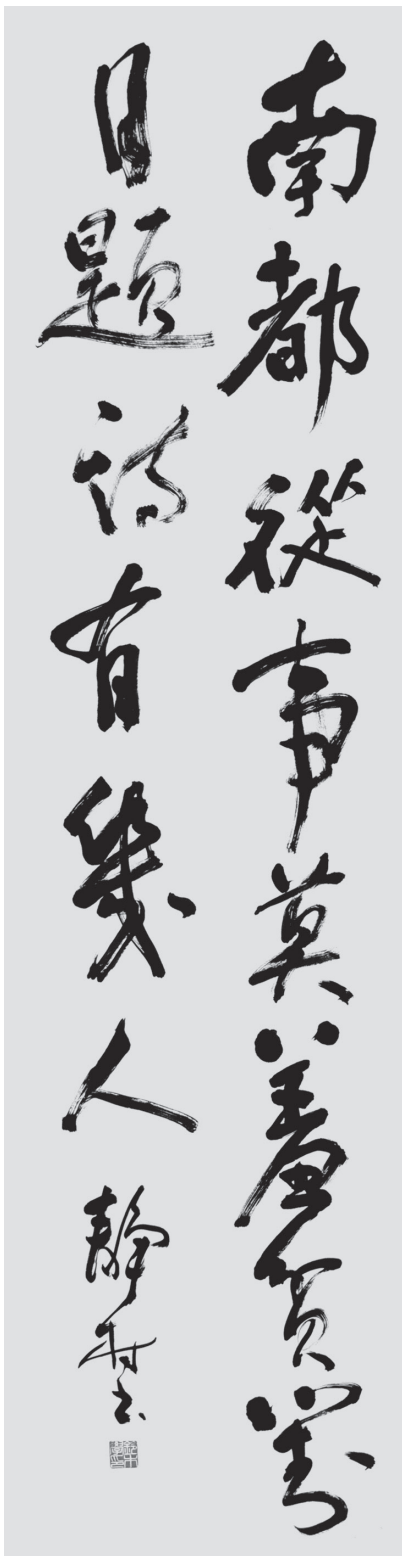 南都從事莫羞貧對
月題詩有幾人
靜村書